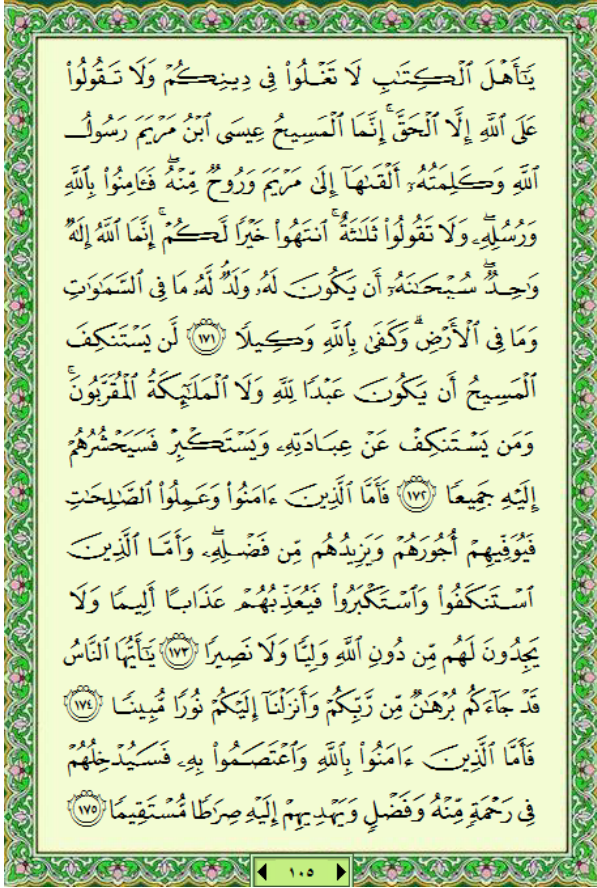 يَـٰٓأَهْلَ ٱلْكِتَـٰبِ لَا تَغْلُوا۟ فِى دِينِكُمْ وَلَا تَقُولُوا۟
عَلَى ٱللَّهِ إِلَّا ٱلْحَقَّ ۚ إِنَّمَا ٱلْمَسِيحُ عِيسَى ٱبْنُ مَرْيَمَ رَسُولُ
ٱللَّهِ وَكَلِمَتُهُۥٓ أَلْقَىٰهَآ إِلَىٰ مَرْيَمَ وَرُوحٌ مِّنْهُ ۖ فَـَٔامِنُوا۟ بِٱللَّهِ
وَرُسُلِهِۦ ۖ وَلَا تَقُولُوا۟ ثَلَـٰثَةٌ ۚ ٱنتَهُوا۟ خَيْرًا لَّكُمْ ۚ إِنَّمَا ٱللَّهُ إِلَـٰهٌ
وَٰحِدٌ ۖ سُبْحَـٰنَهُۥٓ أَن يَكُونَ لَهُۥ وَلَدٌ ۘ لَّهُۥ مَا فِى ٱلسَّمَـٰوَٰتِ
وَمَا فِى ٱلْأَرْضِ ۗ وَكَفَىٰ بِٱللَّهِ وَكِيلًا ﴿١٧١﴾ لَّن يَسْتَنكِفَ
ٱلْمَسِيحُ أَن يَكُونَ عَبْدًا لِّلَّهِ وَلَا ٱلْمَلَـٰٓئِكَةُ ٱلْمُقَرَّبُونَ ۚ
وَمَن يَسْتَنكِفْ عَنْ عِبَادَتِهِۦ وَيَسْتَكْبِرْ فَسَيَحْشُرُهُمْ
إِلَيْهِ جَمِيعًا ﴿١٧٢﴾ فَأَمَّا ٱلَّذِينَ ءَامَنُوا۟ وَعَمِلُوا۟ ٱلصَّـٰلِحَـٰتِ
فَيُوَفِّيهِمْ أُجُورَهُمْ وَيَزِيدُهُم مِّن فَضْلِهِۦ ۖ وَأَمَّا ٱلَّذِينَ
ٱسْتَنكَفُوا۟ وَٱسْتَكْبَرُوا۟ فَيُعَذِّبُهُمْ عَذَابًا أَلِيمًا وَلَا
يَجِدُونَ لَهُم مِّن دُونِ ٱللَّهِ وَلِيًّا وَلَا نَصِيرًا ﴿١٧٣﴾ يَـٰٓأَيُّهَا ٱلنَّاسُ
قَدْ جَآءَكُم بُرْهَـٰنٌ مِّن رَّبِّكُمْ وَأَنزَلْنَآ إِلَيْكُمْ نُورًا مُّبِينًا ﴿١٧٤﴾
فَأَمَّا ٱلَّذِينَ ءَامَنُوا۟ بِٱللَّهِ وَٱعْتَصَمُوا۟ بِهِۦ فَسَيُدْخِلُهُمْ
فِى رَحْمَةٍ مِّنْهُ وَفَضْلٍ وَيَهْدِيهِمْ إِلَيْهِ صِرَٰطًا مُّسْتَقِيمًا ﴿١٧٥﴾
١٠٥